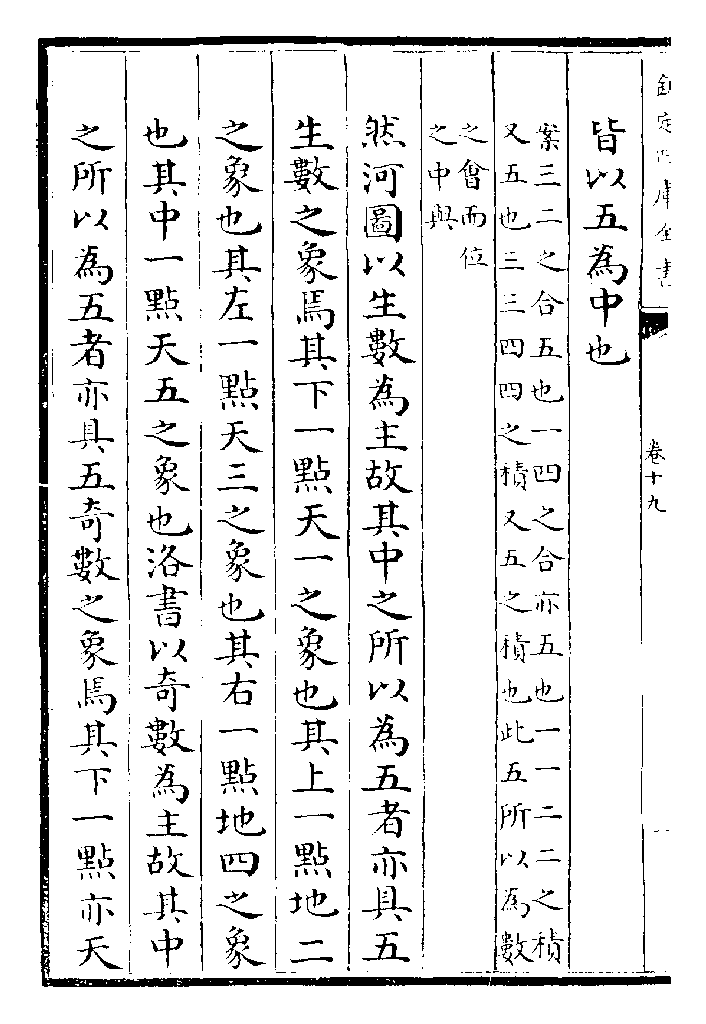 欽定四庫全書
卷十九
皆以五為中也
案三二之合五也一四之合亦五也一一二二之積
又五也三三四四之積又五之積也此五所以為數
之會而位
之中與
然河圖以生數為主故其中之所以為五者亦具五
生數之象焉其下一點天一之象也其上一點地二
之象也其左一點天三之象也其右一點地四之象
也其中一點天五之象也洛書以奇數為主故其中
之所以為五者亦具五奇數之象焉其下一點亦天